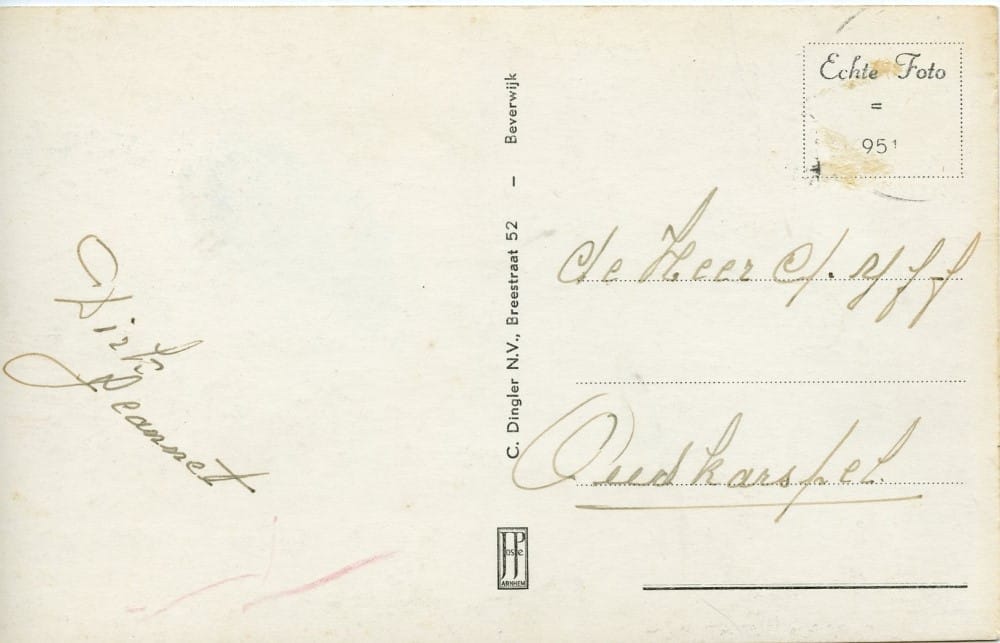 Dirk
Jeannet
C. Dingler N.V., Breestraat 52 – Beverwijk
JosPe
ARNHEM
Echte Foto
=
951
de Heer
Oudkarspel.